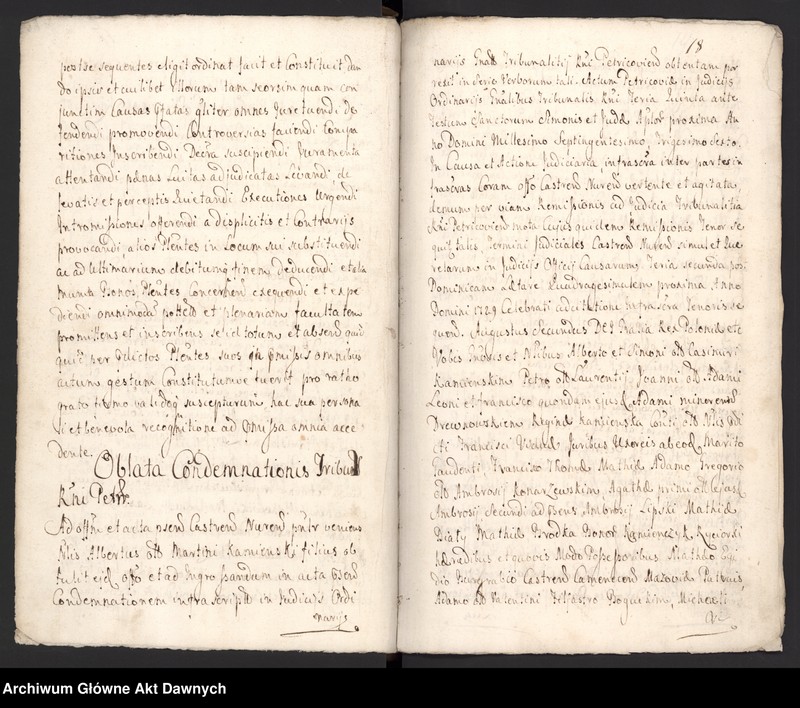 postse sequentes eligit ordinat facit et Constituit dan
do ipsis et cuilibet Illorum tam seorsim quam con
junctim Causas pttas qliter omnes Juretuendi de
fendendi promovendi Controversias faciendi Compa
ritiones Inscribendi Decra suscipiendi Juramenta
attentandi pænas luitas adjudicatas Levandi, de
levatis et perceptis Quietandi Executiones Urgendi
Intromissiones offerendi a displicitis et Contrarijs
provocandi, alios Plentes in Locum sui substituendi
ac ad Ultimarium debitumq finem deducendi et
Bonor, Plentes Concernen exequendi et expe
diendi omnimodam pottem et plenariam facultatem
promittens et inscribens se id totum et absend quid
quid per dilectos Plentes suos in pmissis omnibus
actum gestum Constitutumve fuerit pro ratho
grato firmo validoq suscepturum hac sua persona
li et benevola recognitione ad pmissa omnia acce
dente.
Oblata Condemnationis Tribuli
Rni Petr.
Ad offm et acta psend Castrend Nurend pnlr veniens
Nlis Albertus olb Martini Kamienski filius ob
tulit eid offo et ad Ingrossandum in acta psend
Condemnationem infrascriptt in Judicijs Ordi
narijs
18
narijs Gnalb Tribunalitij Rni Petricoviend obtentam per
rescit in Serie Verborum tali. Actum Petricoviæ in Judicijs
Ordinarijs Gnalibus Tribunalis Rni Feria Quinta ante
Festum Sanctorum Simonis et Judæ Aplor proxima An
no Domini Millesimo Septingentesimo, Trigesimo Sexto.
In Causa et Actione Judiciaria infrascra inter partes in
frascras Coram offo Castrend Nurend vertente et agitata,
demum per viam Remissionis ad Judicia Tribunalitia
Rni Petricoviend mota Cujus quidem Remissionis Tenor se
quit talis. Termini Judiciales Castrend Nurend simul et Que
relarum in Judicijs Officij Causarum Feria secunda post
Dominicam Lætare Quadragesimalem proxima Anno
Domini 1729 Celebrati ad citationem infrascra Tenoris se
quend. Augustus Secundus DEI Gratia Rex Poloniæ etc
Vobis Gnbsus et Nlibus Alberto et Simoni olb Casimiri
Kamienskim Petro olb Laurentij Joanni olb Adami
Leoni et Francisco quondam ejusd Adami minorend
Drewnowskiem Reginæ Kamienska conti olb Nlis
Francisci Viduæ Juribus Uxoreis ab eod Marito
Gaudenti, Francisco Thomæ Mathiæ Adamo Gregorio
olb Ambrosij Konarzewskim Agathæ primi olb ejusd
Ambrosij Secundi ad psens Ambrosij Lipski Mathiæ
Biały Mathiæ Brodka Bonor Kamienczyk, Ryciorki
hæredibus et quovis Modo Possessoribus Mathæo
dio Castrend Camenecend Mazoviæ
Adamo olb Valentini Boguskim, Michaeli